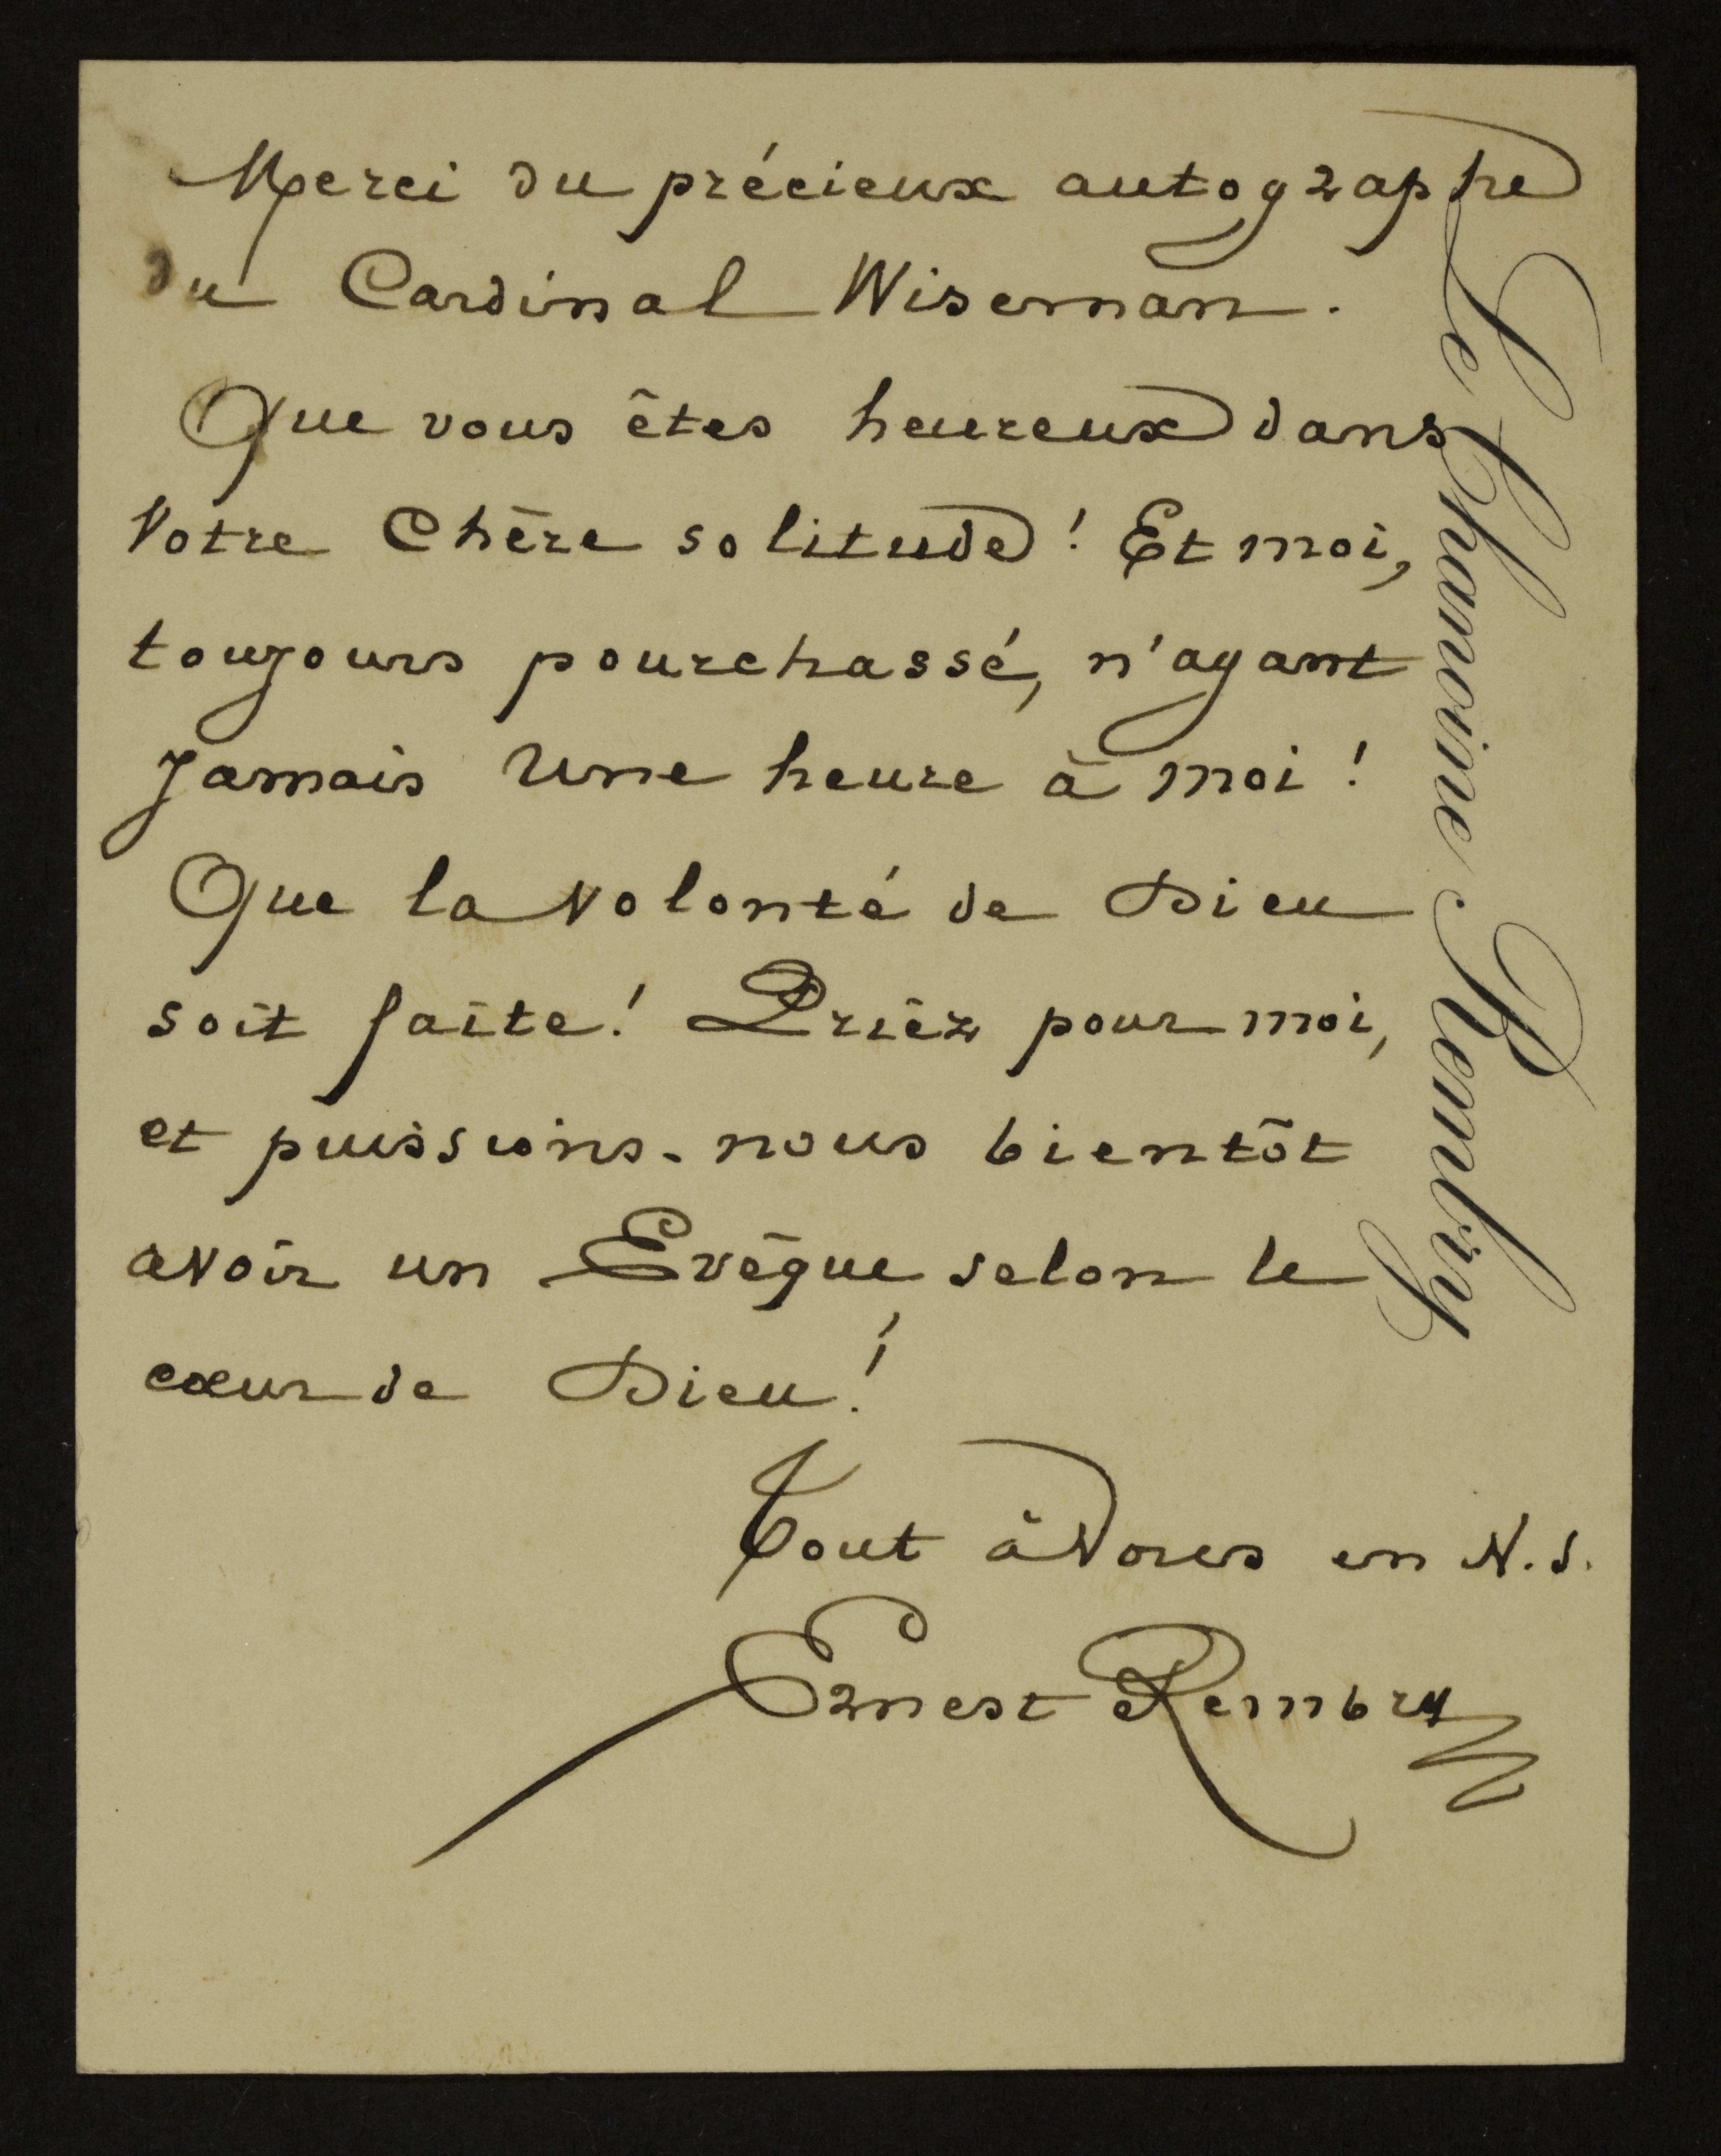 Merci du précieux autographe
du Cardinal Wiseman.
Que vous êtes heureux dans
Votre Chère solitude! Et moi,
toujours pourchassé, n'ayant
Jamais Une heure à moi!
Que la Volonté de Dieu
soit faite! Priez pour moi,
et puissions-nous bientôt
avoir un Evêque selon le
cœur de Dieu!
Tout à Vous en N.S.
Ernest Rembry
Le Chanoine Rembry